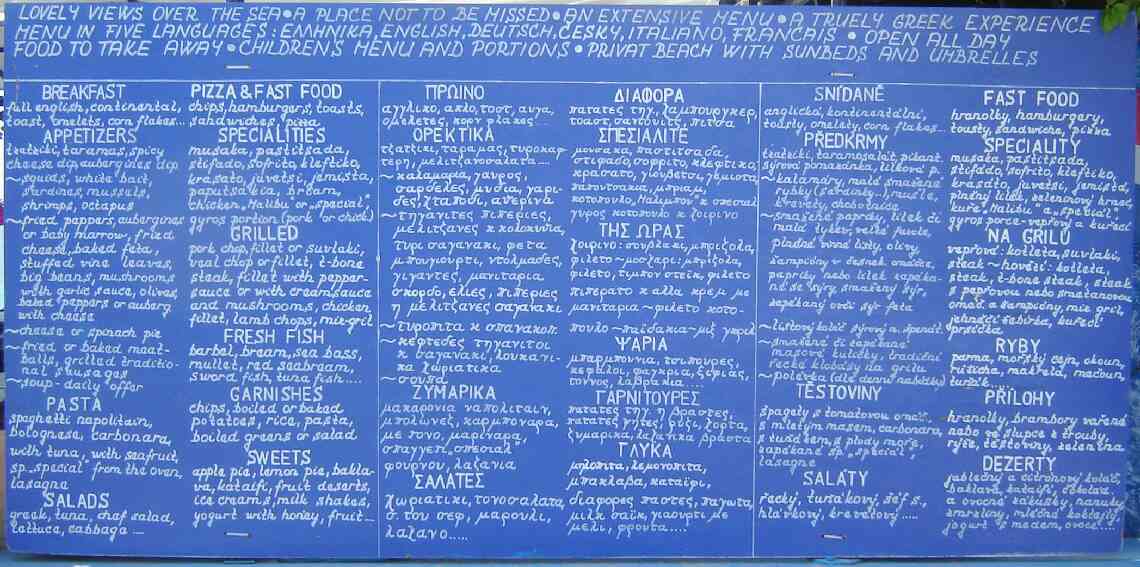 LOVELY VIEWS OVER THE SEA•A PLACE NOT TO BE MISSED•AN EXTENSIVE MENU•A TRUELY GREEK EXPERIENCE
MENU IN FIVE LANGUAGES: ΕΛΛΗΝΙΚΑ, ENGLISH, DEUTSCH, ČESKY, ITALIANO, FRANCAIS • OPEN ALL DAY
FOOD TO TAKE AWAY•CHILDREN'S MENU AND PORTIONS•PRIVAT BEACH WITH SUNBEDS AND UMBRELLES
BREAKFAST
full english, continental,
toast, omelets, corn flakes...
APPETIZERS
tzatziki, taramas, spicy
cheese dip, aubergines dip
~squids, white bait,
sardines, mussels,
shrimps, octapus
~fried peppers, aubergines
or baby marrow, fried
cheese, baked feta,
stuffed vine leaves,
big beans, mushrooms
with garlic sauce, olives,
baked peppers or auberg.
with cheese
~cheese or spinach pie
~fried or baked meat-
balls, grilled traditio-
nal sausages
~soup-daily offer
PASTA
spaghetti napolitain,
bolognese, carbonara,
with tuna, with seafruit,
sp. "special" from the oven,
lasagne
SALADS
greek, tuna, chef salad,
lettuce, cabbage ...
PIZZA & FAST FOOD
chips, hamburgers, toasts,
sandwiches, pizza
SPECIALITIES
musaka, pastitsada,
stifado, sofrito, kleftiko,
krasato, juvetsi, jemista,
paputsakia, bream,
chicken "Halibu" or "special"
gyros portion (pork or chick)
GRILLED
pork chop, fillet or suvlaki,
veal chop or fillet, t-bone
steak, fillet with pepper-
sauce or with cream sauce
and mushrooms, chicken
fillet, lamb chops, mix-gril
FRESH FISH
barbel, bream, sea bass,
mullet, red seabream,
sword fish, tuna fish....
GARNISHES
chips, boiled or baked
potatoes, rice, pasta,
boiled greens or salad
SWEETS
apple pie, lemon pie, bakla-
va, kataifi, fruit deserts,
ice creams, milk shakes,
yogurt with honey, fruit...
ΠΡΩΙΝΟ
αγγλικο, απλο, τοστ, αυγα,
ομελετες, κορν φλακες...
ΟΡΕΚΤΙΚΑ
τζατζικι, ταραμας, τυροκαφ-
τερη, μελιτζανοσαλατα....
~καλαμαρια, γαυρος,
σαρδελες, μυδια, γαρι-
δες, χταποδι, αθερινα
~τηγανιτες πιπεριες,
μελιτζανες κ κολοκυθια,
τυρι σαγανακι, φετα
μπουγιουρτι, ντολμαδες,
γιγαντες, μανιταρια
σκορδο, ελιες, πιπεριες
η μελιτζανες σαγανακι
~τυροπιτα κ σπανακοπ.
~κεφτεδες τηγανιτοι
κ σαγανακι, λουκανι-
κα χωριατικα
~σουπα
ΖΥΜΑΡΙΚΑ
μακαρονια ναπολιταιν,
μπολωνεζ, καρμποναρα,
με τονο, μαριναρα,
σπαγγετι, σπεσιαλ
φουρνου, λαζανια
ΣΑΛΑΤΕΣ
χωριατικη, τονοσαλατα
σ. του σεφ, μαρουλι,
λαχανο.....
ΔΙΑΦΟΡΑ
πατατες τηγ, χαμπουργκερ,
τοαστ, σαντουιτς, πιτσα
ΣΠΕΣΙΑΛΙΤΕ
μουσακα, παστιτσαδα,
στιφαδο, σοφριτο, κλεφτικο,
κρασατο, γιουβετσι, γεμιστα,
παπουτσακια, μπριαμ,
κοτοπουλο "Χαλιμπου" κ σπεσιαλ
γυρος κοτοπουλο κ χοιρινο
ΤΗΣ ΩΡΑΣ
χοιρινο: σουβλακι, μπριζολα,
φιλετο~μοσχαρι: μπριζολα,
φιλετο, τιμπον στεικ, φιλετο
πιπερατο κ αλλα κρεμ με
μανιταρια~φιλετο κοτο-
πουλο~παιδακια~μιξ γκριλ
ΨΑΡΙΑ
μπαρμπουνια, τσιπουρες,
κεφαλοι, φαγκρια, ξιφιας,
τοννος, λαβρακια....
ΓΑΡΝΙΤΟΥΡΕΣ
πατατες τηγ. η βραστες,
πατατες ψητες, ρυζι, χορτα,
ζυμαρικα, λαχανικα βραστα
ΓΛΥΚΑ
μηλοπιτα, λεμονοπιτα,
μπακλαβα, καταιφι,
διαφορες παστες, παγωτα,
μιλκ σαικ, γιαουρτι με
μελι, φρουτα....
SNÍDANĚ
anglická, kontinentální,
tousty, omelety, corn flakes...
PŘEDKRMY
tzatziki, taramosalát, pikant.
sýrová pomazánka, lilková p.
~kalamáry, malé smažené
rybky (sardinky), mušle,
krevety, chobotnice
~smažené papriky, lilek či
malé tykve, velké fazole,
plněné vinné listy, olivy,
žampiony v česnek. omáčce,
papriky nebo lilek zapéka-
né se sýry, smažený sýr,
zapékaný ovčí sýr feta
~listový koláč sýrový a špenát.
~smažené či zapékané
masové kuličky, tradiční
řecké klobásy na grilu
~polévka (dle denní nabídky)
TĚSTOVINY
špagety s tomatovou omáč.,
s mletým masem, carbonara,
s tuňákem, s plody moře,
zapékané sp. "special",
lasagne
SALÁTY
řecký, tuňákový, šéf s.,
hlávkový, krevetový.....
FAST FOOD
hranolky, hamburgery,
tousty, sandwiche, pizza
SPECIALITY
musaka, pastitsada,
stifádo, sofrito, kleftiko,
krasato, juvetsi, jemistá,
plněný lilek, zeleninový braec,
kuře "Halibu" a "special"
gyros porce-vepřový a kuřecí
NA GRILU
vepřové: kotleta, suvlaki,
steak ~ hovězí: kotleta,
steak, t-bone steak, steak
s pepřovou nebo smetanovou
omáč. a žampiony, mix gril,
jehněčí žebírka, kuřecí
prsíčka
RYBY
parma, mořský cejn, okoun,
růžicha, makrela, mečoun,
tuňák...
PŘÍLOHY
hranolky, brambory vařené
nebo ve slupce z trouby,
rýže, těstoviny, zelenina
DEZERTY
jablečný a citrónový koláč,
baklavá, kataifi, čokolád.
a ovocné zákusky, banány,
zmrzliny, mléčné koktejly,
jogurt s medem, ovoce.....